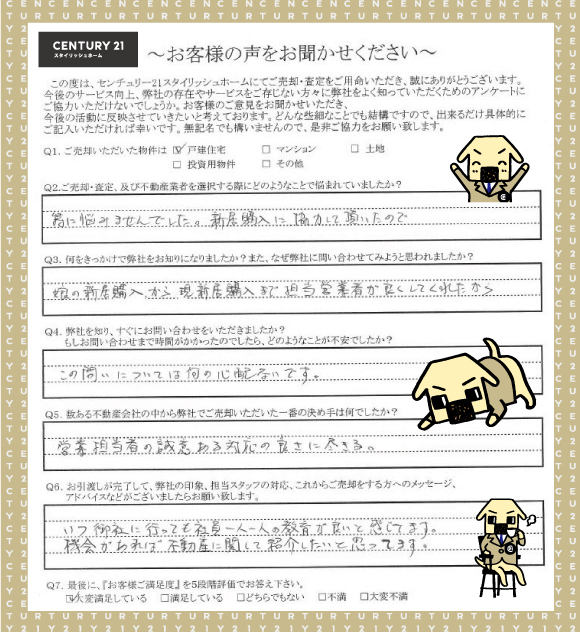 CENTURY 21
スタイリッシュホーム
～お客様の声をお聞かせください～
この度は、センチュリー21スタイリッシュホームにてご売却・査定をご用命いただき、誠にありがとうございます。
今後のサービス向上、弊社の存在やサービスをご存じない方々に弊社をよく知っていただくためのアンケートに
ご協力いただけないでしょうか。お客様のご意見をお聞かせいただき、
今後の活動に反映させていきたいと考えております。どんな些細なことでも結構ですので、出来るだけ具体的に
ご記入いただければ幸いです。無記名でも構いませんので、是非ご協力をお願い致します。
Q1. ご売却いただいた物件は ☑ 戸建住宅 □ マンション □ 土地
□ 投資用物件 □ その他
Q2.ご売却・査定、及び不動産業者を選択する際にどのようなことで悩まれていましたか?
特に悩みませんでした。新居購入に協力して頂いたので
Q3. 何をきっかけで弊社をお知りになりましたか?また、なぜ弊社に問い合わせてみようと思われましたか?
娘の新居購入から現新居購入まで担当営業者が良くしてくれたから
Q4. 弊社を知り、すぐにお問い合わせをいただきましたか?
もしお問い合わせまで時間がかかったのでしたら、どのようなことが不安でしたか?
この問いについては何の心配ないです。
Q5. 数ある不動産会社の中から弊社でご売却いただいた一番の決め手は何でしたか?
営業担当者の誠意ある対応の良さに尽きる。
Q6. お引渡しが完了して、弊社の印象、担当スタッフの対応、これからご売却をする方へのメッセージ、
アドバイスなどがございましたらお願い致します。
いつ御社に行っても社員一人一人の教育が良いと感じてます。
機会があれば不動産に関して紹介したいと思ってます。
Q7. 最後に、『お客様ご満足度』を5段階評価でお答え下さい。
☑大変満足している □満足している □どちらでもない □不満 □大変不満